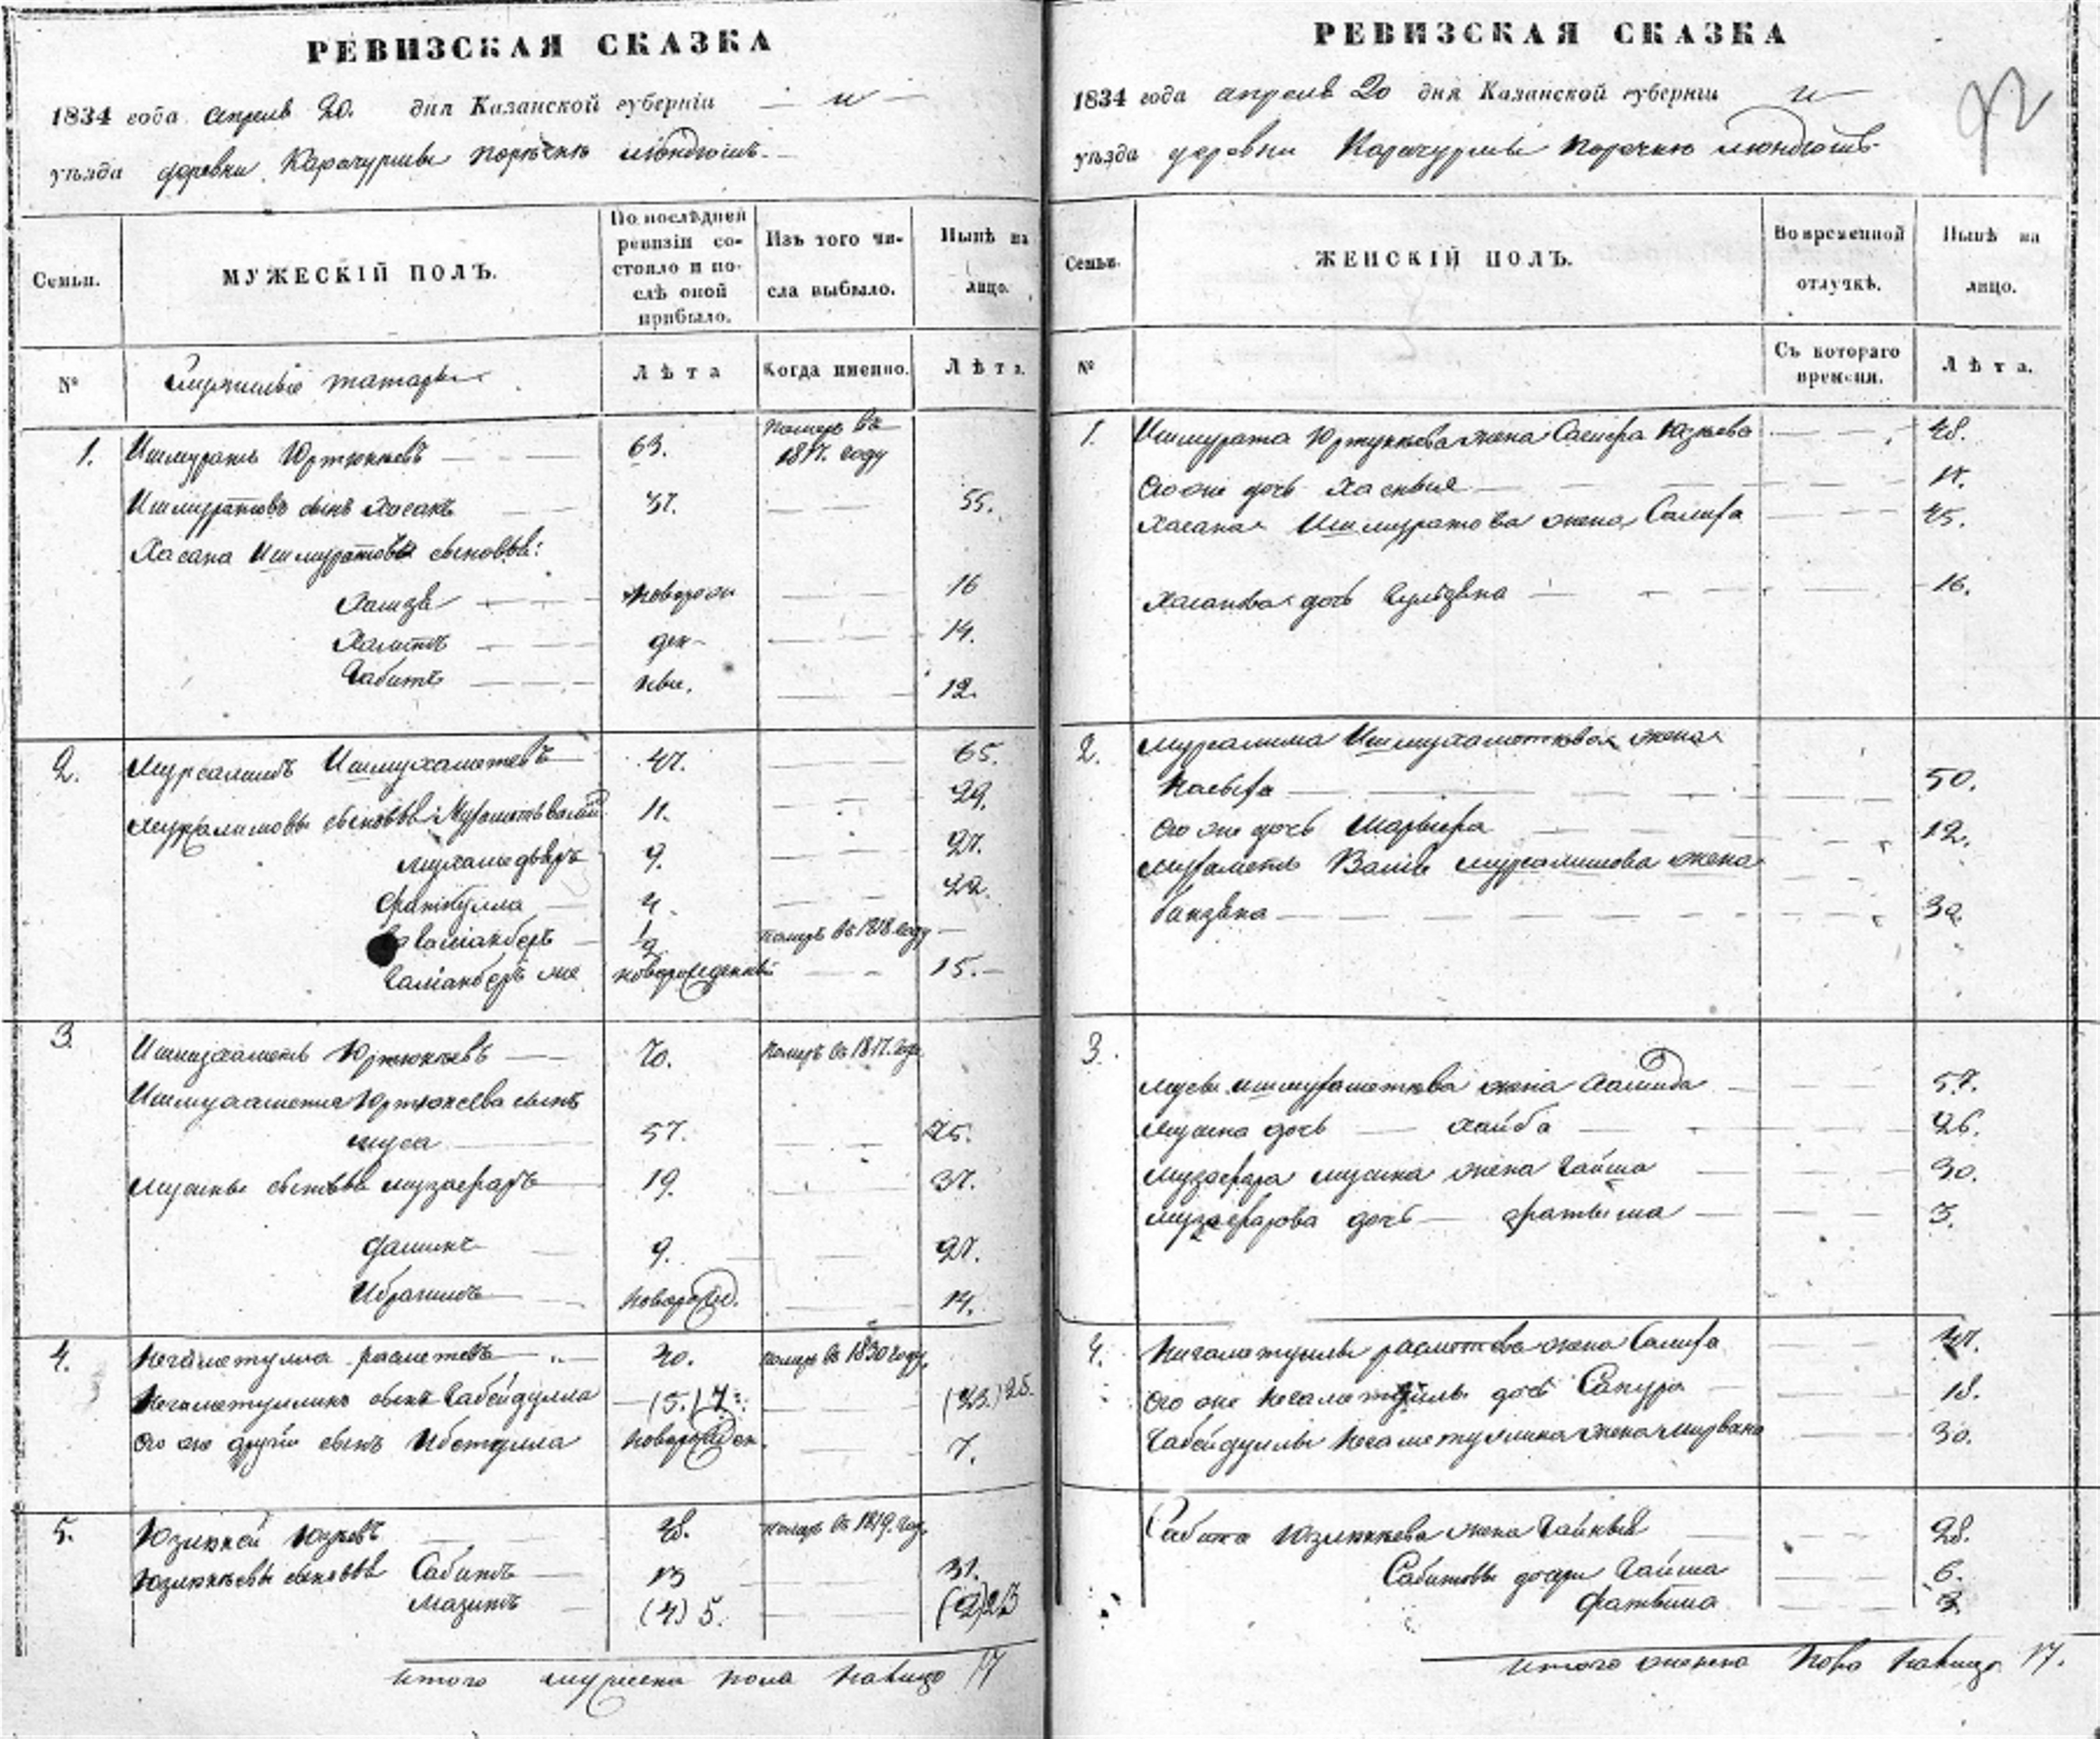 РЕВИЗСКАЯ СКАЗКА
1834 года апреля 20. дня Казанской губерніи — и —
уѣзда деревни Карачурины
Семьи.
МУЖЕСКІЙ ПОЛЪ.
По послѣдней ревизіи состояло и послѣ оной прибыло.
Изъ того числа выбыло.
Нынѣ на лицо.
№
татары
Лѣта
Когда именно.
Лѣта.
1. Ишмуратъ Юртюкѣевъ 63. померъ въ 1817. году
Ишмуратовъ сынъ Хасанъ 37. 55.
Хасана Ишмуратова сыновья:
Хамза новорож 16
Хамитъ ден 14.
Габитъ ные. 12.
2. Мурсалимъ Ишмухаметевъ 47. 65.
Мурсалимовы сыновья Мухаметьвалий 11. 29.
Мухамедьяръ 9. 27.
4. 22.
1/2 померъ въ 1818 году
Галіакберъ же новорожденный 15.
3. Ишмухаметь Юртюкѣевъ 70. померъ въ 1817. году
Ишмухаметя Юртюкѣева сынъ
Муса 57. 75.
Мусины сыновья Музафаръ 19. 37.
9. 27.
Ибрагимъ новорожд. 14.
4. Негаметулла Рахметевъ 40. померъ въ 1830 году.
Негаметуллинъ сынъ Габейдулла (5.) 7. (23.) 25.
Его же другой сынъ Ибетулла новорожден. 7.
5. Юзюкѣевъ 28. померъ въ 1819. году
сыновья Сабитъ 13 31.
Мазитъ (4) 5. 23
Итого мужеска пола налицо 17
РЕВИЗСКАЯ СКАЗКА
1834 года апреля 20 дня Казанской губерніи и
уѣзда деревни Карачурины
Семьи.
ЖЕНСКІЙ ПОЛЪ.
Во временной отлучкѣ.
Нынѣ на лицо.
№
Съ котораго времени.
Лѣта.
1. Ишмурата Юртюкѣева жена 48.
Его же дочь 17.
Хасана Ишмуратова жена Салиха 45.
Хасанова дочь 16.
2. Мурсалима Ишмухаметева жена
Насыха 50.
Его же дочь 12.
Мухаметь Валия Мурсалимова жена
Фаизвна 30.
3. Мусы Ишмухаметева жена Хамида 57.
Мусина дочь Хайба 26.
Музафара Мусина жена Гайша 30.
Музафарова дочь Фатыма 3.
4. Нигаматуллы Рахметева жена Салиха 47.
Его же Негаметуллы дочь Сапура 18.
Габейдуллы Негаметуллина жена Мирвана 30.
Сабита жена 28.
Сабитовы дочери Гайша 6.
Фатыма 3.
Итого женска пола налицо 17.